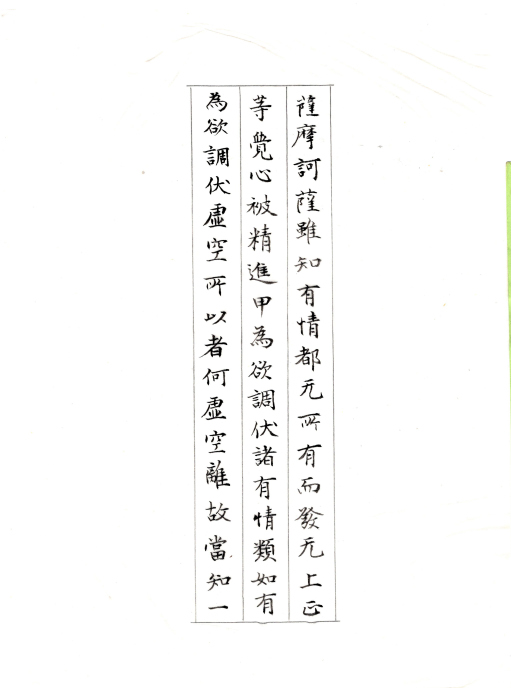 薩摩訶薩雖知有情都无所有而發无上正
等覺心被精進甲為欲調伏諸有情類如有
為欲調伏虛空所以者何虛空離故當知一